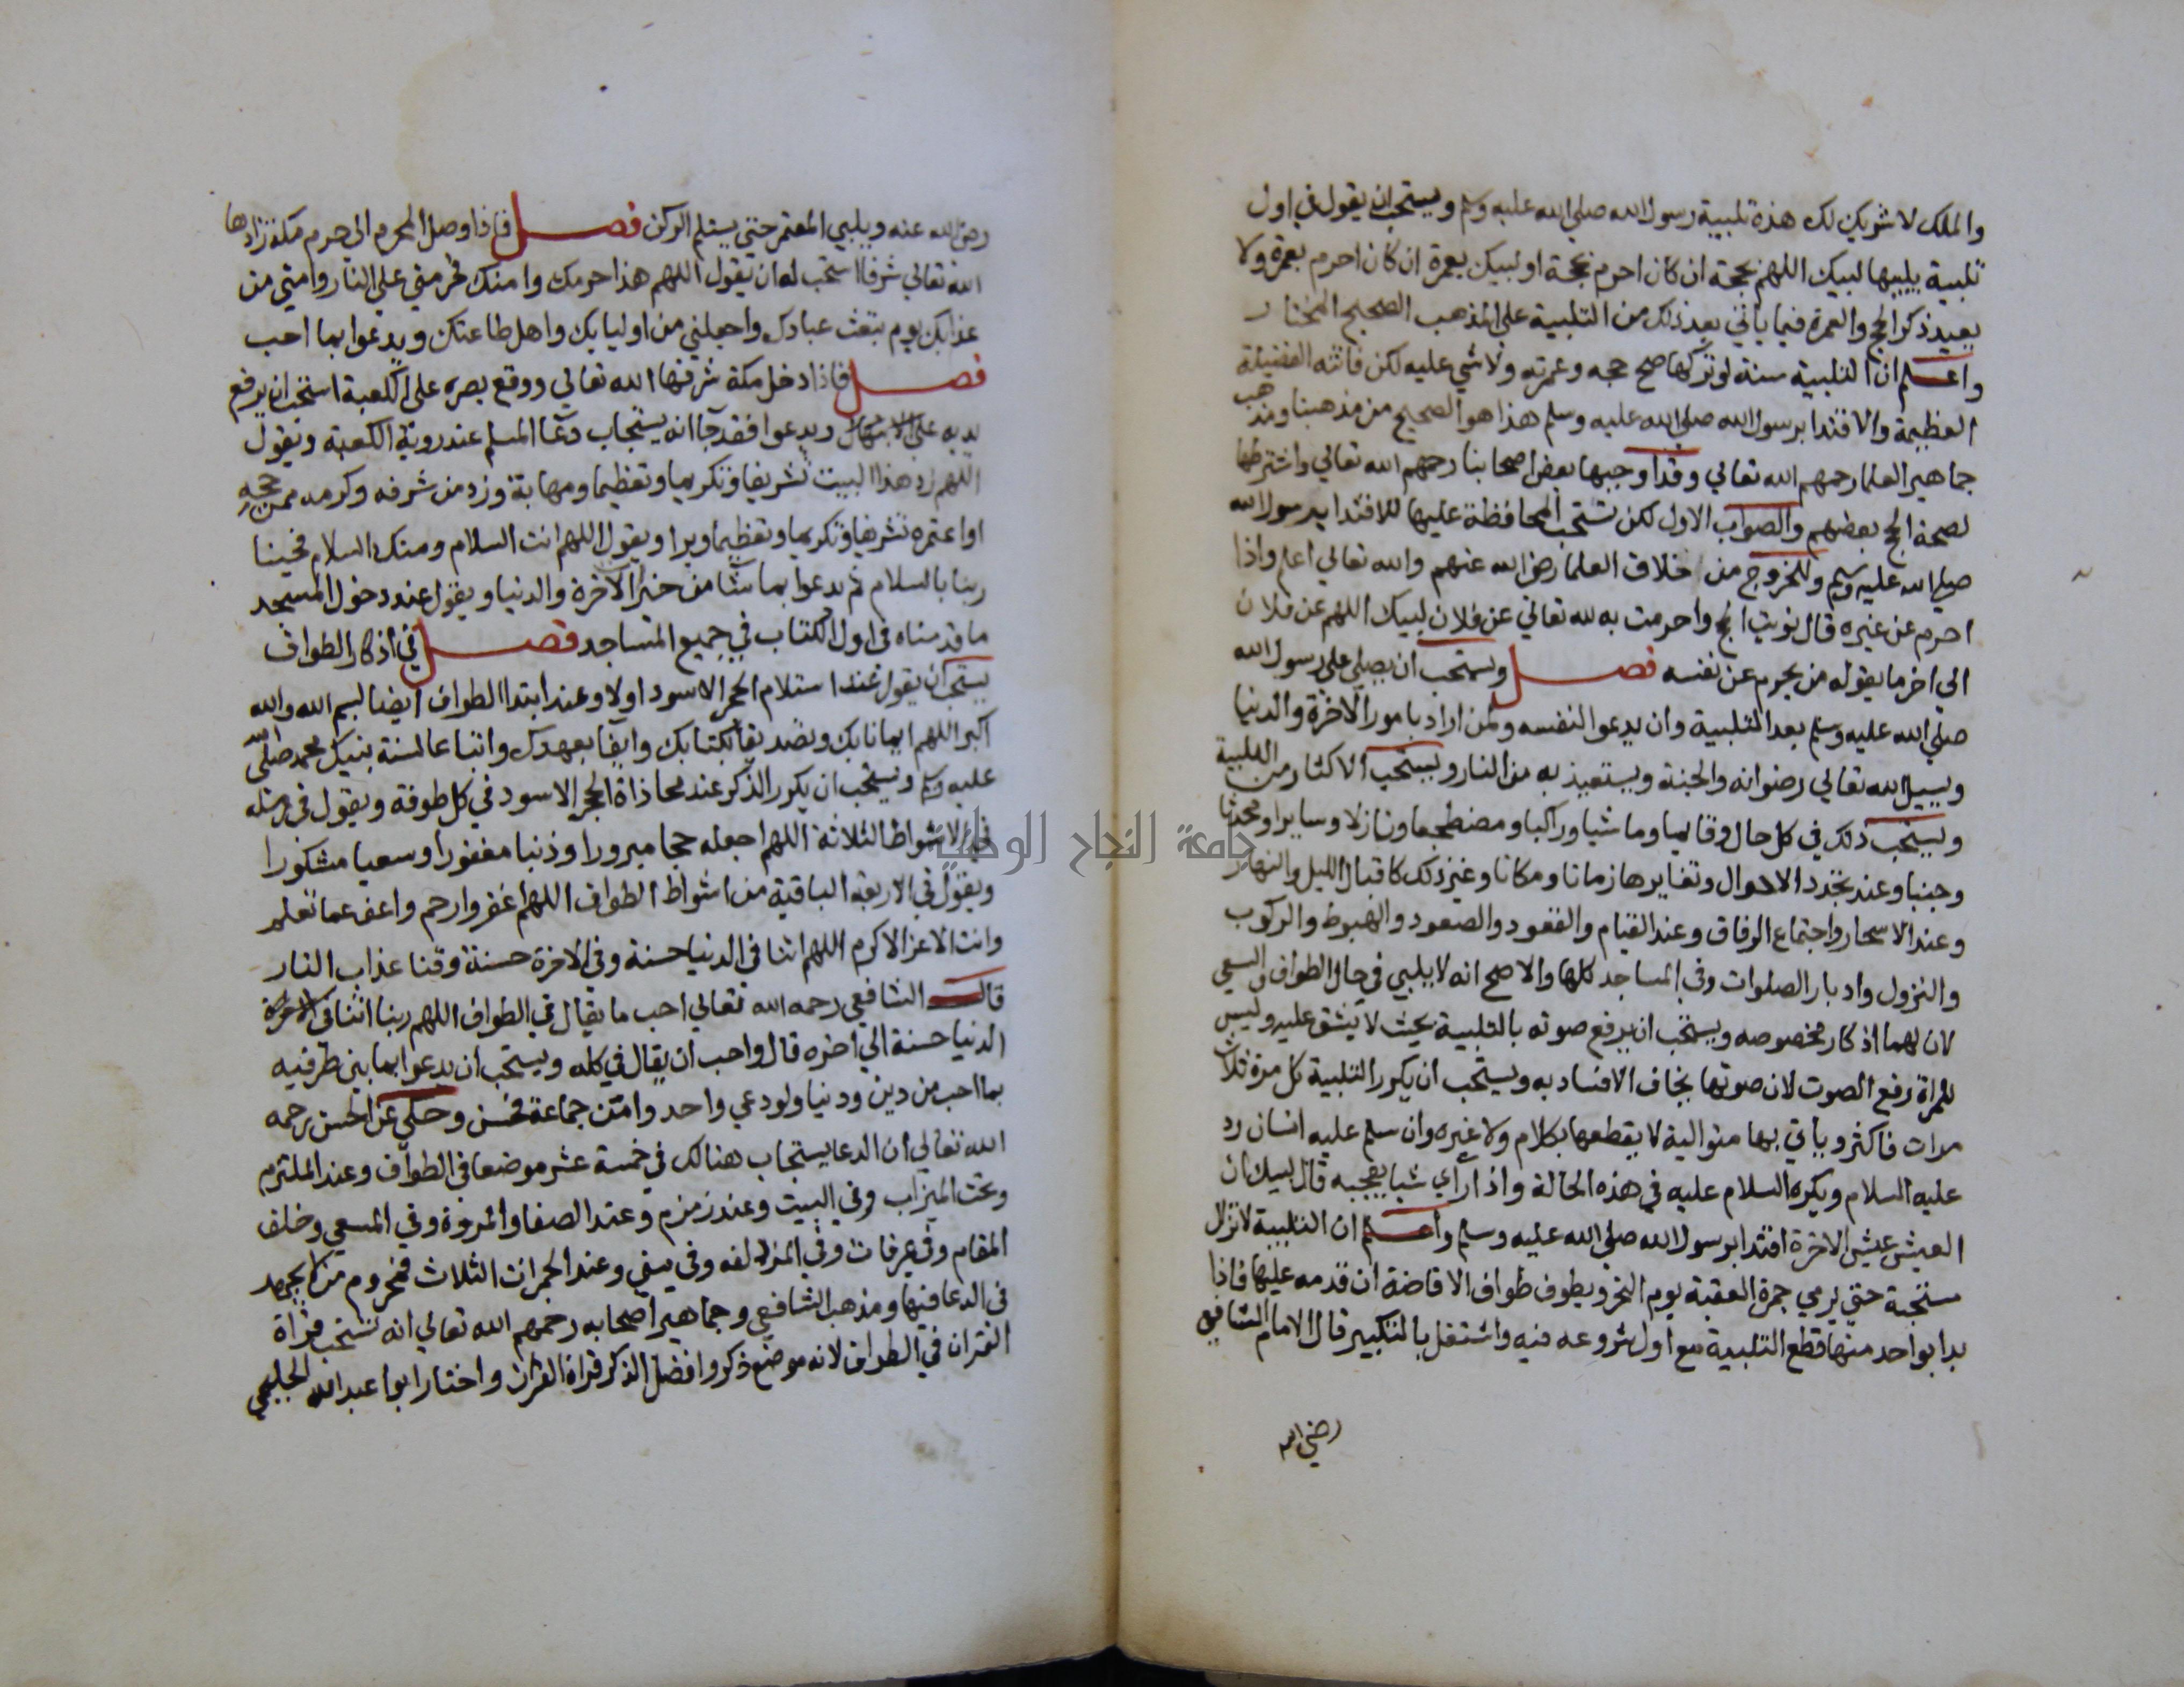 والملك لا شريك لك هذه تلبية رسول الله صلي الله عليه وسلم ويستحب ان يقول في اول
تلبية يلبيها لبيك اللهم بحجة ان كان احرم بحجة او لبيك بعمرة ان كان احرم بعمرة ولا
يعيد ذكر الحج والعمرة فيما ياتي بعد ذلك من التلبية علي المذهب الصحيح المختار
واعلم ان التلبية سنة لو تركها صح حجه وعمرته ولا شي عليه لكن فاتته الفضيلة
العظيمة والاقتدا برسول الله صلي الله عليه وسلم هذا هو الصحيح من مذهبنا ومذهب
جماهير العلما رحمهم الله تعالي وقد اوجبها بعض اصحابنا رحمهم الله تعالي واشترطها
لصحة الحج بعضهم والصواب الاول لكن تستحب المحافظة عليها للاقتدا برسول الله
صلي الله عليه وسلم وللخروج من خلاف العلما رضي الله عنهم والله تعالي اعلم واذا
احرم عن غيره قال نويت الحج واحرمت به لله تعالي عن فلان لبيك اللهم عن فلان
الي اخر ما يقوله من يحرم عن نفسه فصل ويستحب ان يصلي علي رسول الله
صلي الله عليه وسلم بعد التلبية وان يدعو لنفسه ولمن اراد بامور الاخرة والدنيا
ويسيل الله تعالي رضوانه والجنة ويستعيذ به من النار ويستحب الاكثار من التلبية
ويستحب ذلك في كل حال وقايما وماشيا وراكبا ومضطجعا ونازلا وسايرا ومحدثا
وجنبا وعند تجدد الاحوال وتغايرها زمانا ومكانا وغير ذلك كاقبال الليل والنهار
وعند الاسحار واجتماع الرفاق وعند القيام والقعود والصعود والهبوط والركوب
والنزول وادبار الصلوات وفي المساجد كلها والاصح انه لا يلبي في حال الطواف والسعي
لان لهما اذكار مخصوصه ويستحب ان يرفع صوته بالتلبية بحيث لا يشق عليه وليس
للمراة رفع الصوت لان صوتها يخاف الافتناد به ويستحب ان يكرر التلبية كل مرة ثلاث
مرات فاكثر وياتي بها متوالية لا يقطعها بكلام ولا غيره وان سلم عليه انسان رد
عليه السلام ويكره السلام عليه في هذه الحالة واذا راي شيا يعجبه قال لبيك ان
العيش عيش الاخرة اقتدا برسول الله صلي الله عليه وسلم واعلم ان التلبية لا تزال
مستحبة حتي يرمي جمرة العقبة يوم النحر ويطوف طواف الافاضة ان قدمه عليها فاذا
بدا بواحد منها قطع التلبية مع اول شروعه فيه واشتغل بالتكبير قال الامام الشافعي
رضي الله
رضي الله عنه ويلبي المعتمر حتي يستلم الركن فصل فاذا وصل المحرم الي حرم مكة زادها
الله تعالي شرفا استحب له ان يقول اللهم هذا حرمك وامنك فحرمني علي النار وامني من
عذابك يوم تبعث عبادك واجعلني من اوليايك واهل طاعتك ويدعوا بما احب
فصل فاذا دخل مكة شرفها الله تعالي ووقع بصره علي الكعبة استحب ان يرفع
يديه علي الابتهال ويدعوا فقد جا انه يستجاب دعا المسلم عند روية الكعبة ويقول
اللهم زد هذا البيت تشريفا وتكريما وتعظيما ومهابة وزد من شرفه وكرمه ممن حجه
او اعتمره تشريفا وتكريما وتعظيما وبرا ويقول اللهم انت السلام ومنك السلام فحينا
ربنا بالسلام ثم يدعوا بما شا من خير الاخرة والدنيا ويقول عند دخول المسجد
ما قدمناه في اول الكتاب في جميع المساجد فصل في اذكار الطواف
يستحب ان يقول عند استلام الحجر الاسود اولا وعند ابتدا الطواف ايضا بسم الله والله
اكبر اللهم ايمانا بك وتصديقا بكتابك وايفا بعهدك واتباعا لسنة نبيك محمد صلي الله
عليه وسلم ويستحب ان يكرر الذكر عند محاذاة الحجر الاسود في كل طوفة ويقول في رمله
في الاشواط الثلاثة اللهم اجعله حجا مبرورا وذنبا مغفورا وسعيا مشكورا
ويقول في الاربعة الباقية من اشواط الطواف اللهم اغفر وارحم واعف عما تعلم
وانت الاعز الاكرم اللهم اتنا في الدنيا حسنة وفي الاخرة حسنة وقنا عذاب النار
قال الشافعي رحمه الله تعالي احب ما يقال في الطواف اللهم ربنا اتنا في الاخرة
الدنيا حسنة الي اخره قال واحب ان يقال في كله ويستحب ان يدعوا بما بين طرفيه
بما احب من دين ودنيا ولو دعي واحد وامن جماعة فحسن وحكي عن الحسن رحمه
الله تعالي ان الدعا يستجاب هنالك في خمسة عشر موضعا في الطواف وعند الملتزم
وتحت الميزاب وفي البيت وعند زمزم وعند الصفا والمروة وفي المسعي وخلف
المقام وفي عرفات وفي المزدلفه وفي مني وعند الجمرات الثلاث فمحروم من لا يجتهد
في الدعا فيها ومذهب الشافعي وجماهير اصحابه رحمهم الله تعالي انه تستحب قراة
القران في الطواف لانه موضع ذكر وافضل الذكر قراة القران واختار ابوا عبد الله الحليمي
جامعة النجاح الوطنية